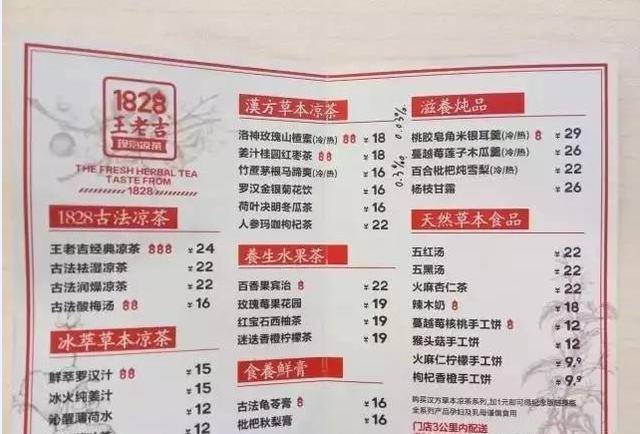 1828
王老吉
现泡凉茶
THE FRESH HERBAL TEA
TASTE FROM
1828
1828古法凉茶
王老吉经典凉茶 ¥24
古法祛湿凉茶 ¥22
古法润燥凉茶 ¥22
古法酸梅汤 ¥16
冰萃草本凉茶
鲜萃罗汉汁 ¥15
冰火纯姜汁 ¥15
沁醒薄荷水 ¥12
¥12
漢方草本凉茶
洛神玫瑰山楂素(冷/热) ¥18
姜汁桂圆红枣茶 ¥18
竹蔗茅根马蹄爽(冷/热) ¥16
罗汉金银菊花饮 ¥16
荷叶决明冬瓜茶 ¥16
人参玛咖枸杞茶 ¥22
養生水果茶
百香果宾治 ¥22
玫瑰莓果花园 ¥19
红宝石西柚茶 ¥19
迷迭香橙柠檬茶 ¥19
食養鲜膏
古法龟苓膏 ¥16
枇杷秋梨膏 ¥16
0.03%
0.3‰
滋養炖品
桃胶皂角米银耳羹(冷/热) ¥29
蔓越莓莲子木瓜羹(冷/热) ¥26
百合枇杷炖雪梨(冷/热) ¥22
杨枝甘露 ¥26
天然草本食品
五红汤 ¥22
五黑汤 ¥22
火麻杏仁茶 ¥22
辣木奶 ¥18
蔓越莓核桃手工饼 ¥12
猴头菇手工饼 ¥12
火麻仁柠檬手工饼 ¥9.9
枸杞香橙手工饼 ¥9.9
购买汉方草本凉茶系列,加1元即可得纪念版
全系列产品孕妇及乳母谨慎食用
门店3公里内配送